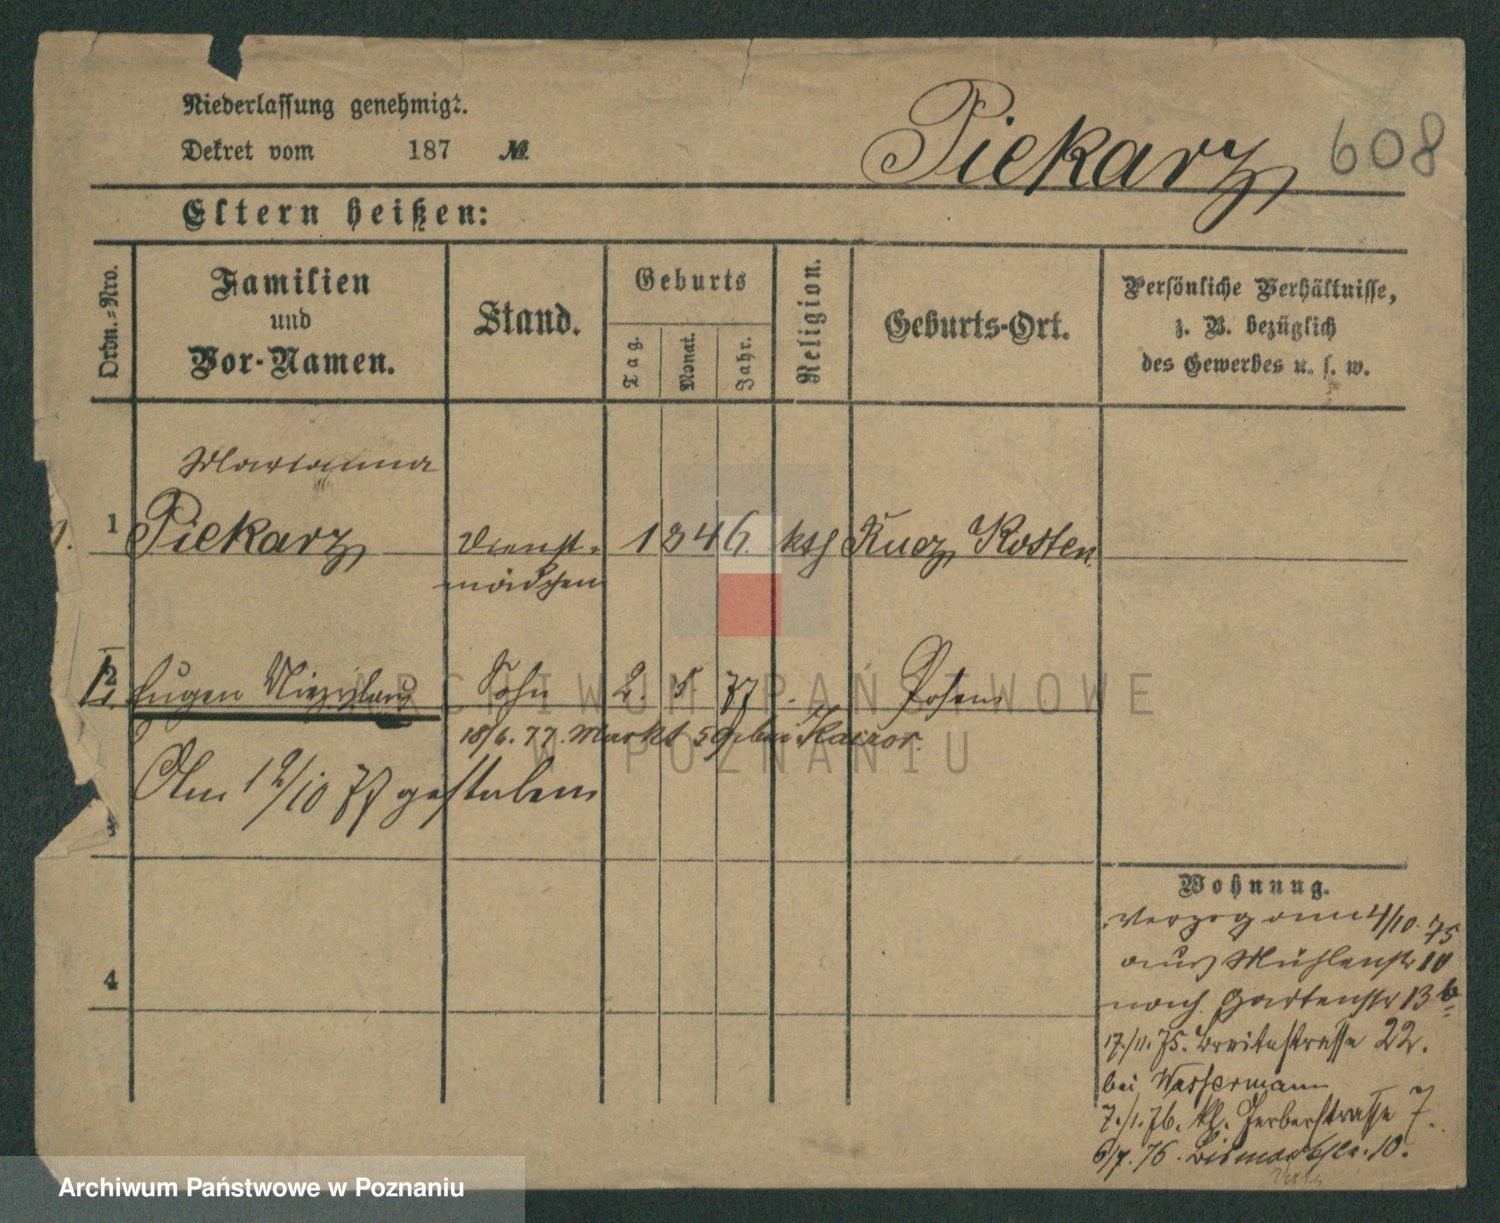 Niederlassung genehmigt.
Dekret vom 187 №
Piekarz 608
Eltern heißen:
Ordn.-Nro.
Familien
und
Vor-Namen.
Stand.
Geburts
Tag.
Monat.
Jahr.
Religion.
Geburts-Ort.
Persönliche Verhältnisse,
z. B. bezüglich
des Gewerbes u. s. w.
Marianna
1. 1 Piekarz Dienst- 1846. kth Kosten
mädchen
2 Eugen Sohn 2. 5 77. Posen
18/6. 77. Markt 59 bei Kaczor.
Am 12/10 77 gestorben
4
Wohnung.
Verzog am 4/10. 75
aus Mühlenstr 10
nach Gartenstr 13b
17./11. 75. Breitestrasse 22.
bei Wassermann
7./1. 76. kl. Gerberstrasse 7.
6/7. 76. Bismarckstr. 10.
ARCHIWUM PAŃSTWOWE
W POZNANIU
Archiwum Państwowe w Poznaniu